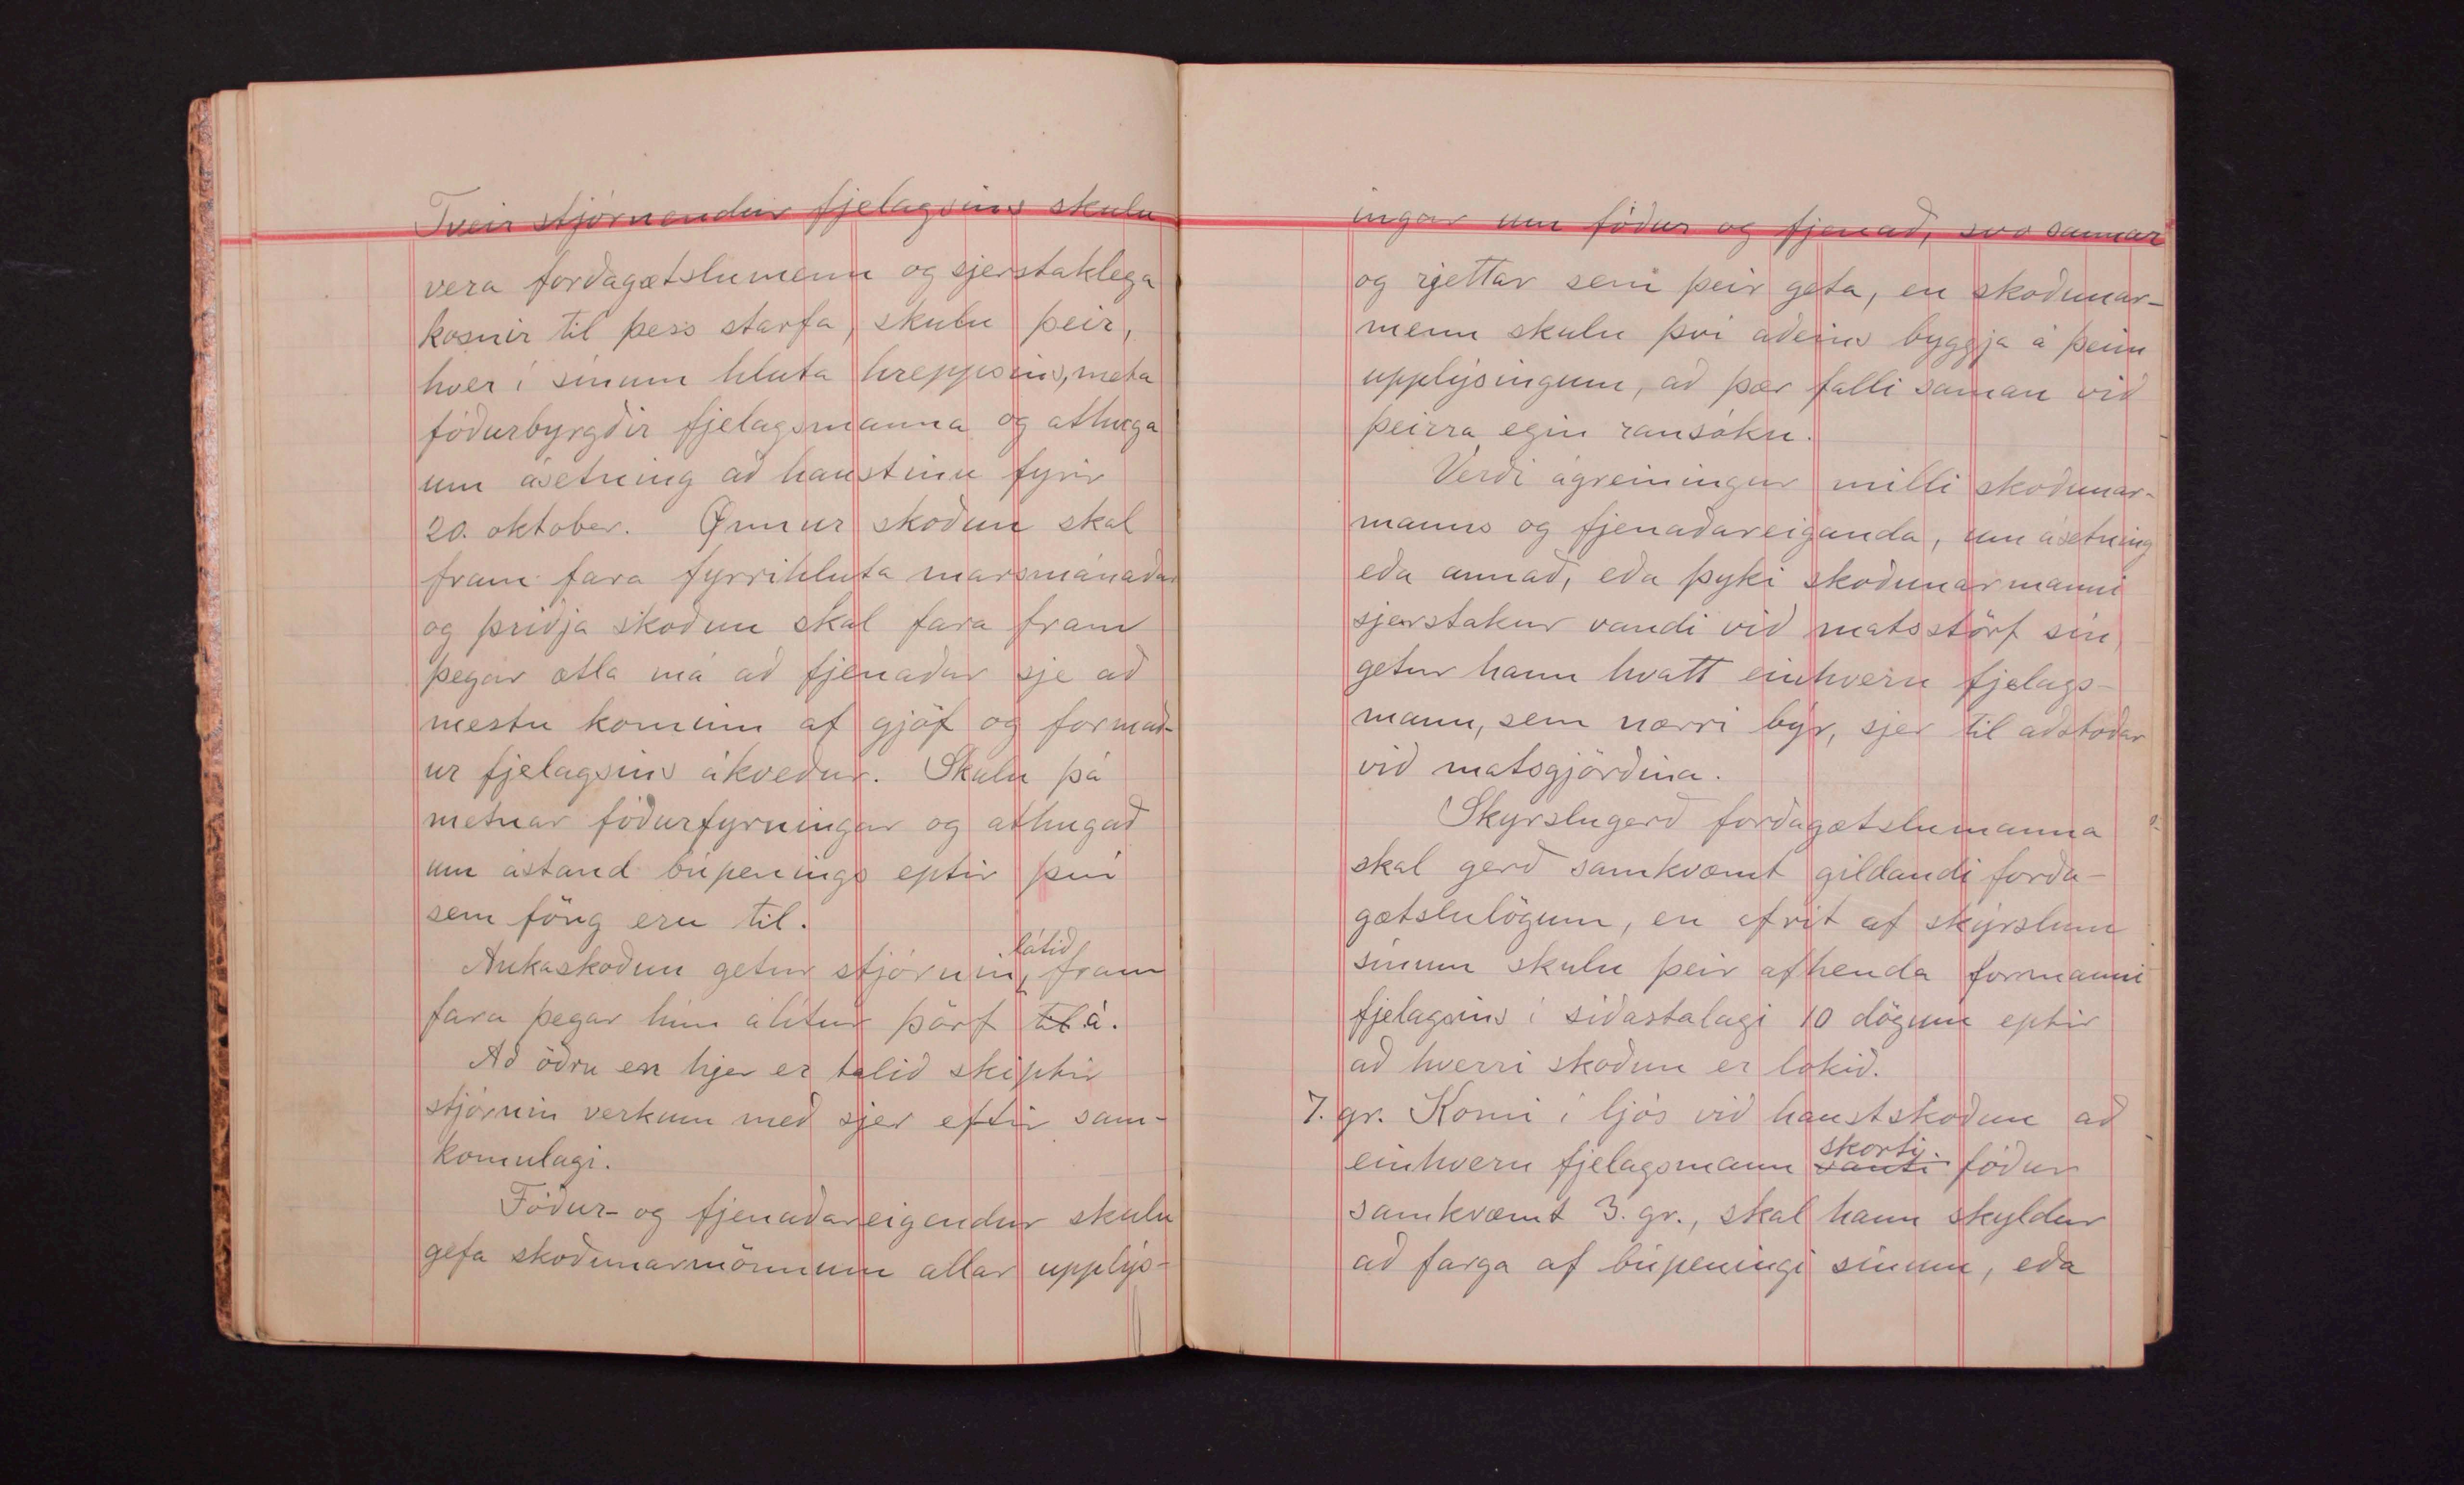 Tveir stjórnendur fjelagsins skulu
vera forðagætslumenn og sjerstaklega
kosnir til þess starfa, skulu þeir,
hver í sínum hluta hreppsins, meta
fóðurbyrgðir fjelagsmanna og athuga
um ásetning að haustinu fyrir
20. oktober. Önnur skoðun skal
fram fara fyrrihluta marsmánaðar
og þriðja skoðun skal fara fram
þegar ætla má að fjenaður sje að
mestu kominn af gjöf og formað-
ur fjelagsins ákveður. Skulu þá
metnar fóðurfyrningar og athugað
um ástand búpenings eptir því
sem föng eru til.
Aukaskoðun getur stjórnin látið fram
fara þegar hún álítur þörf til á.
Að öðru en hjer er talið skiptir
stjórnin verkum með sjer eftir sam-
komulagi.
Fóður- og fjenaðareigendur skulu
gefa skoðunarmönnum allar upplýs-
ingar um fóður og fjenað, svo sannar
og rjettar sem þeir geta, en skoðunar-
menn skulu því aðeins byggja á þeim
upplýsingum, að þær falli saman við
þeirra egin ransókn.
Verði ágreiningur milli skoðunar-
manns og fjenaðareiganda, um ásetning
eða annað, eða þyki skoðunarmanni
sjerstakur vandi við matsstörf sín,
getur hann hvatt einhvern fjelags-
mann, sem nærri býr, sjer til aðstoðar
við matsgjörðina.
Skyrslugerð forðagætslumanna
skal gerð samkvæmt gildandi forða-
gætslulögum, en afrit af skýrslum
sínum skulu þeir afhenda formanni
fjelagsins í síðastalagi 10 dögum eptir
að hverri skoðun er lokið.
7. gr. Komi í ljós við haustskoðun að
einhvern fjelagsmann vanti skorti fóður
samkvæmt 3. gr., skal hann skyldur
að farga af búpeningi sínum, eða